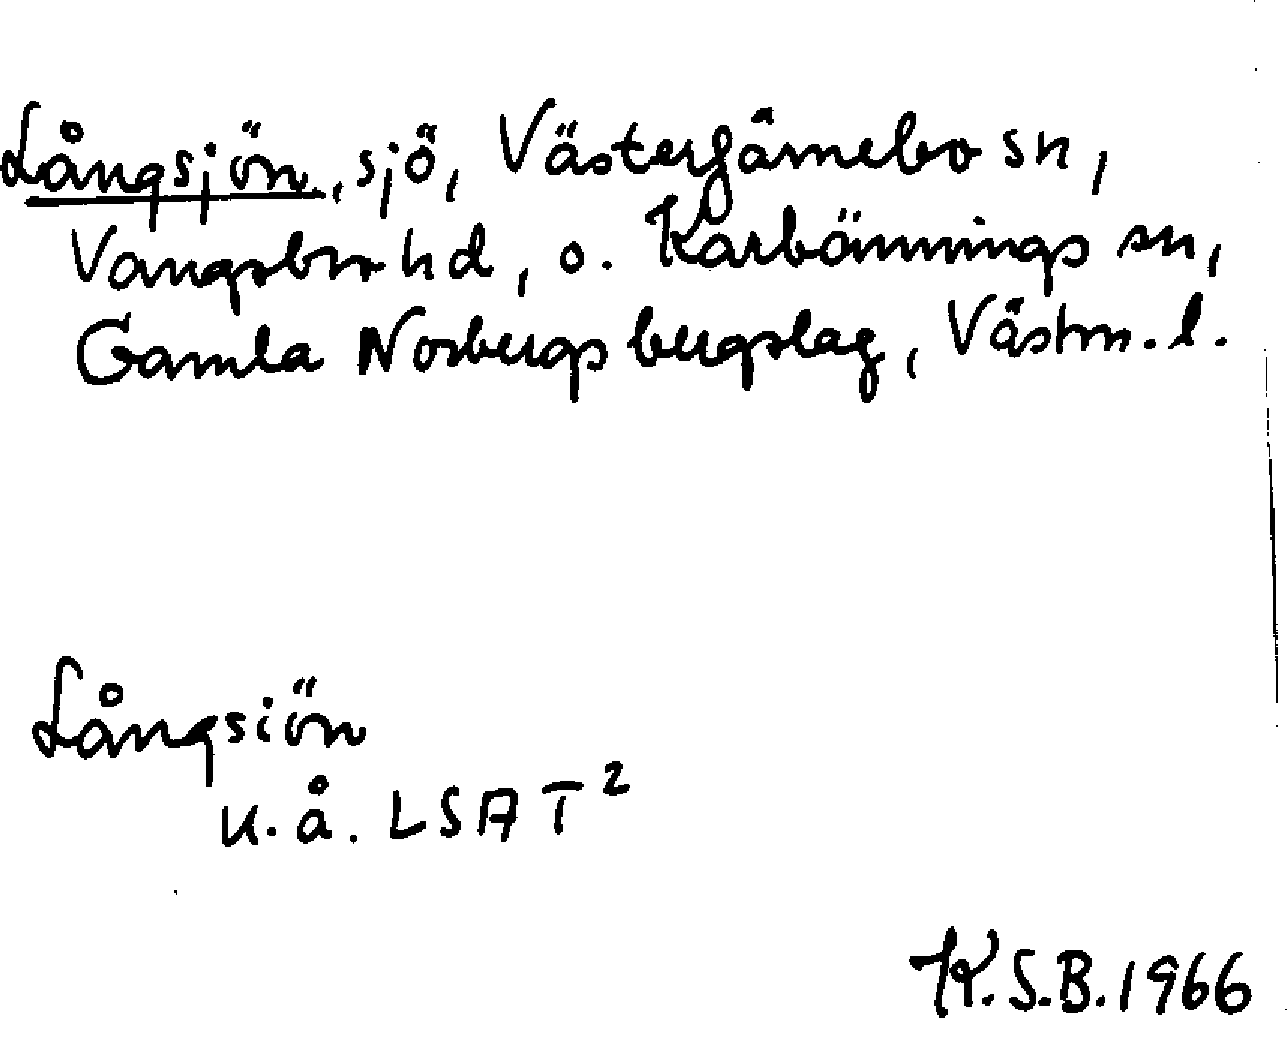 Långsjön, sjö, Västerfärnebo sn,
Vangsbro hd, o. Karbännings sn,
Gamla Norbergs bergslag, Västm. l.
Långsiön
u. å. LSA T²
K.S.B. 1966